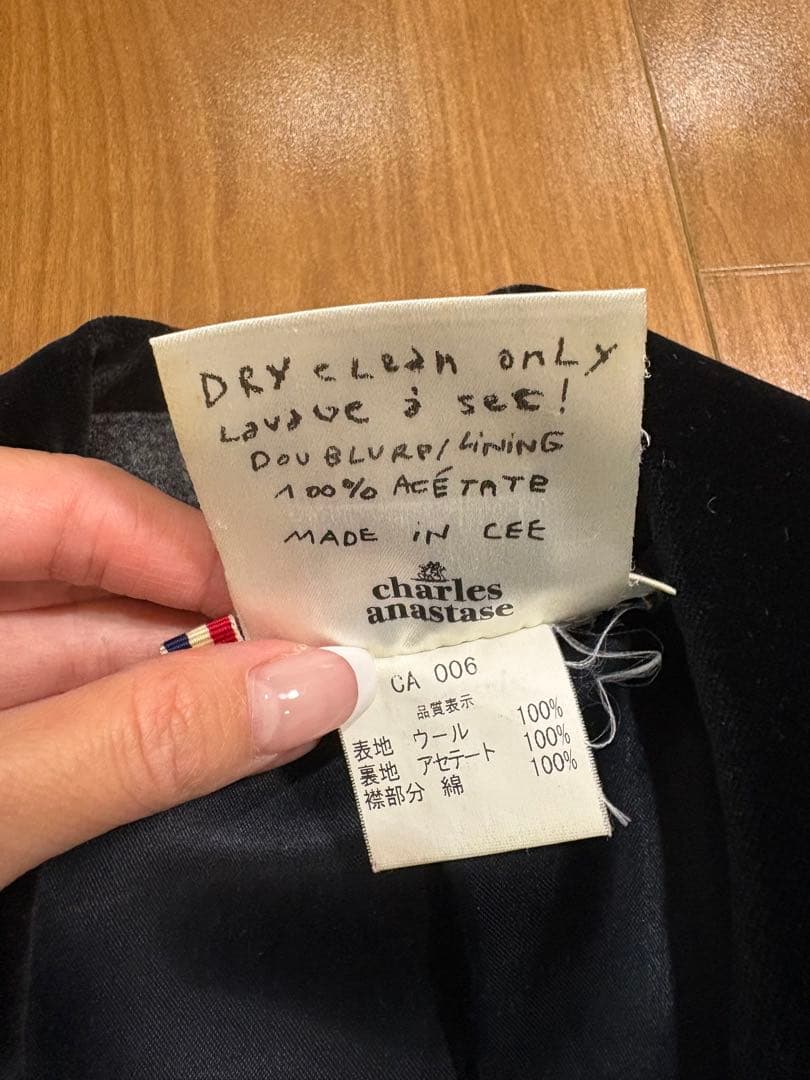 DRY cLean onLy
Lavave à sec!
DOUBLURE/LiNiNG
100% ACÉTATE
MADE iN CEE
charles
anastase
CA 006
品質表示
表地 ウール 100%
裏地 アセテート 100%
襟部分 綿 100%